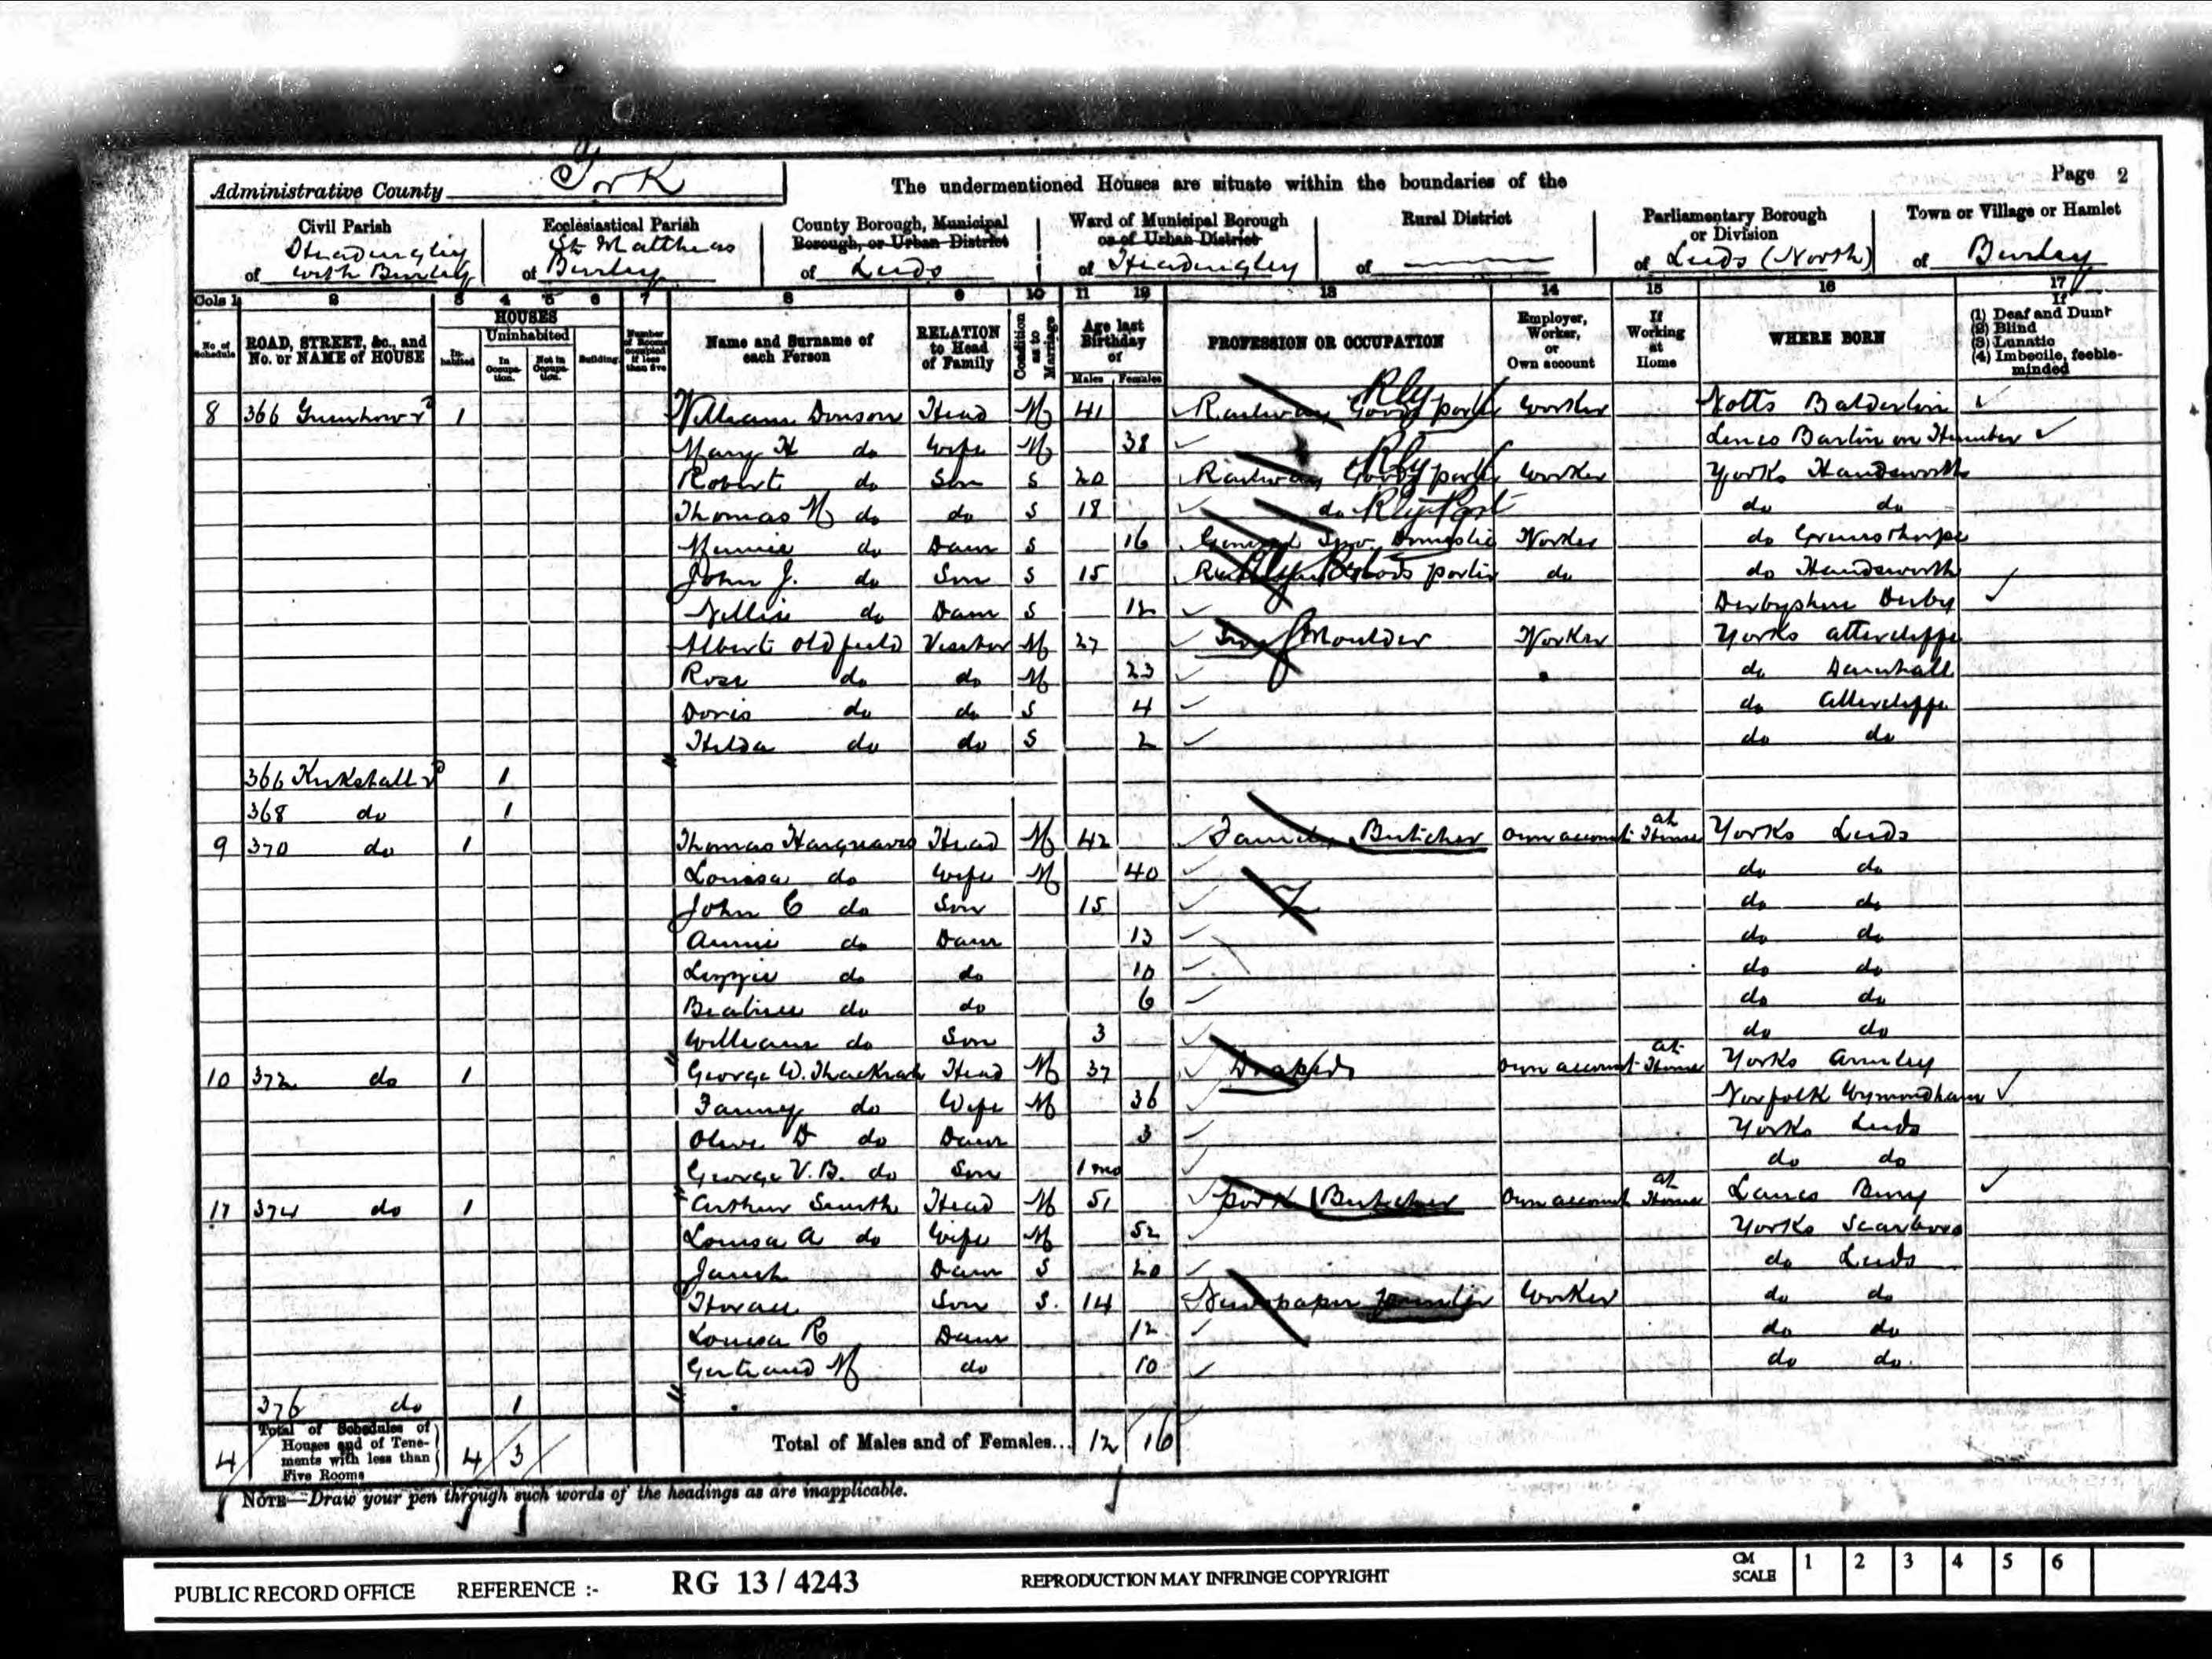 Administrative County York
The undermentioned Houses are situate within the boundaries of the
Page 2
Civil Parish
of Headingley with Burley
Ecclesiastical Parish
of St Matthews Burley
County Borough, Municipal Borough, or Urban District
of Leeds
Ward of Municipal Borough or of Urban District
of Headingley
Rural District
of
Parliamentary Borough or Division
of Leeds (North)
Town or Village or Hamlet
of Burley
Cols 1 2 3 4 5 6 7 8 9 10 11 12 13 14 15 16 17
No. of Schedule
ROAD, STREET, &c., and No. or NAME of HOUSE
HOUSES
Inhabited
Uninhabited
In Occupation.
Not in Occupation.
Building
Number of Rooms occupied if less than five
Name and Surname of each Person
RELATION to Head of Family
Condition as to Marriage
Age last Birthday of
Males Females
PROFESSION OR OCCUPATION
Employer, Worker, or Own account
If Working at Home
WHERE BORN
If
(1) Deaf and Dumb
(2) Blind
(3) Lunatic
(4) Imbecile, feeble-minded
8 366 1 William Head M 41 Railway Goods porter Rly Worker Notts Balderton
Mary H do Wife M 38 Lincs Barton on Humber
Robert do Son S 20 Railway Goods porter Rly Worker Yorks Handsworth
Thomas W do do S 18 do Rly Port do do
Minnie do Daur S 16 General Serv. Domestic Worker do Grimesthorpe
John J. do Son S 15 Railway Goods porter Rly do do Handsworth
Nellie do Daur S 12 Derbyshire Derby
Albert Oldfield Visitor M 27 Iron Moulder Worker Yorks Attercliffe
Rose do do M 23 do Darnhall
Doris do do S 4 do Attercliffe
Hilda do do S 2 do do
366 Kirkstall rd 1
368 do 1
9 370 do 1 Thomas Hargreaves Head M 42 Family Butcher Own account at Home Yorks Leeds
Louisa do Wife M 40 do do
John C do Son 15 do do
Annie do Daur 13 do do
Lizzie do do 10 do do
Beatrice do do 6 do do
William do Son 3 do do
10 372 do 1 George W. Thackrah Head M 37 Draper Own account at Home Yorks Armley
Fanny do Wife M 36 Norfolk Wymondham
Olive D do Daur 3 Yorks Leeds
George V. B. do Son 1 mo do do
11 374 do 1 Arthur Smith Head M 51 Pork Butcher Own account at Home Lancs Bury
Louisa A do Wife M 52 Yorks Scarboro
Janet Daur S 20 do Leeds
Horace Son S. 14 Newspaper Worker do do
Louisa R Daur 12 do do
Gertraud M do 10 do do.
376 do 1
4 Total of Schedules of Houses and of Tenements with less than Five Rooms 4 3 Total of Males and of Females... 12 16
NOTE—Draw your pen through such words of the headings as are inapplicable.
PUBLIC RECORD OFFICE REFERENCE :- RG 13 / 4243 REPRODUCTION MAY INFRINGE COPYRIGHT CM SCALE 1 2 3 4 5 6